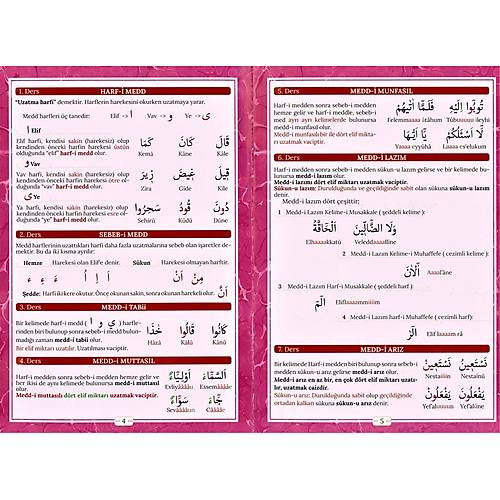 1. Ders
HARF-İ MEDD
"Uzatma harfi" demektir. Harflerin harekesini okurken uzatmaya yarar.
Medd harfleri üç tanedir: Elif -> ا Vav -> و Ye -> ى
ا Elif
Elif harfi, kendisi sakin (harekesiz) olup
kendinden önceki harfin harekesi üstün
olduğunda "elif" harf-i medd olur.
قَالَ كَانَ كَمَا
Kâle Kâne Kemâ
و Vav
Vav harfi, kendisi sakin (harekesiz) olup
kendinden önceki harfin harekesi ötre ol-
duğunda "vav" harf-i medd olur.
قِيلَ غِيضَ زِيرَ
Kîle Gîde Zîra
ى Ye
Ya harfi, kendisi sakin (harekesiz) olup
kendinden önceki harfin harekesi esre ol-
duğunda "ye" harf-i medd olur.
دُونَ قُودُ سَحِرُوا
Dûne Kûdû Sehirû
2. Ders
SEBEB-İ MEDD
Med harflerinin uzattıkları harfi daha fazla uzatmalarına sebep olan işaretler de-
mektir. Bu da iki kısma ayrılır:
Hemze Harekesi olan Elif'e denir. Sükun Harekesi olmayan harftir.
مِنْ أَنْ
Şedde: Harfi iki kere okutur. Önce okunan sakin, sonra okunan harekeli olur.
أَنَّ
3. Ders
MEDD-İ TABİİ
Bir kelimede harf-i medd ( ا و ي ) harfle-
rinden biri bulunup sonra sebeb-i medd bulun-
madığı zaman medd-i tabii olur.
Bir elif miktarı uzatılır. Uzatılması vaciptir.
كَانُوا قَالُوا
Kânû Kâlû Hâzâ
4. Ders
MEDD-İ MUTTASIL
Harf-i medden sonra sebeb-i medden hemze gelir ve
her ikisi de aynı kelimede bulunursa medd-i muttasıl
olur.
Medd-i muttasılı dört elif miktarı uzatmak vaciptir.
جَاءَ سَوَاءٌ
4
5. Ders
MEDD-İ MUNFASIL
Harf-i medden sonra sebeb-i medden
hemze gelir ve harf-i medble, sebeb-i
med ayrı ayrı kelimelerde bulunursa
medd-i munfasıl olur.
Medd-i munfasılı bir ile dört elif mikta-
rı uzatmak vaciptir.
تُوبُوا إِلَيْهِ فَلَمَّا أَتٰيهُمْ
لَا أَسْئَلُكُمْ يَا أَيُّهَا
6. Ders
MEDD-İ LAZIM
Harf-i medden sonra sebeb-i medden sükun-u lazım gelirse ve bir kelimede bu-
lunursa medd-i lazım olur.
Medd-i lazımı dört elif miktarı uzatmak vaciptir.
Sükun-u lazım: Durulduğunda ve geçildiğinde sabit olan sükuna sükun-u lazım
denir.
Medd-i lazım dört çeşittir;
1 Medd-i lazım Kelime-i Musakkale ( şeddeli kelime ):
وَلَا الضَّالِّينَ اَلْحَاقَّةُ
2 Medd-i lazım Kelime-i Muhaffefe ( cezimli kelime ):
آلْآنَ
3 Medd-i lazım Harf-i Musakkale ( şeddeli harf ):
الٓمٓ
4 Medd-i lazım harf-i Muhaffefe ( cezimli harf):
الٓرٰ
7. Ders
MEDD-İ ARIZ
Bir kelimede Harf-i medden biri bulunup sonra sebeb-i
medden sükun-u arız gelirse medd-i arız olur.
Medd-i arız en az bir, en çok dört elif miktarı uzatı-
lır, uzatmak caizdir.
Sükun-u arız: Durulduğunda sabit olup geçildiğinde
ortadan kalkan sükuna sükun-u arız denir.
نَسْتَعِينُ نَسْتَعِينْ
Nestaînü Nestaiiiin
يَفْعَلُونَ يَفْعَلُونْ
5